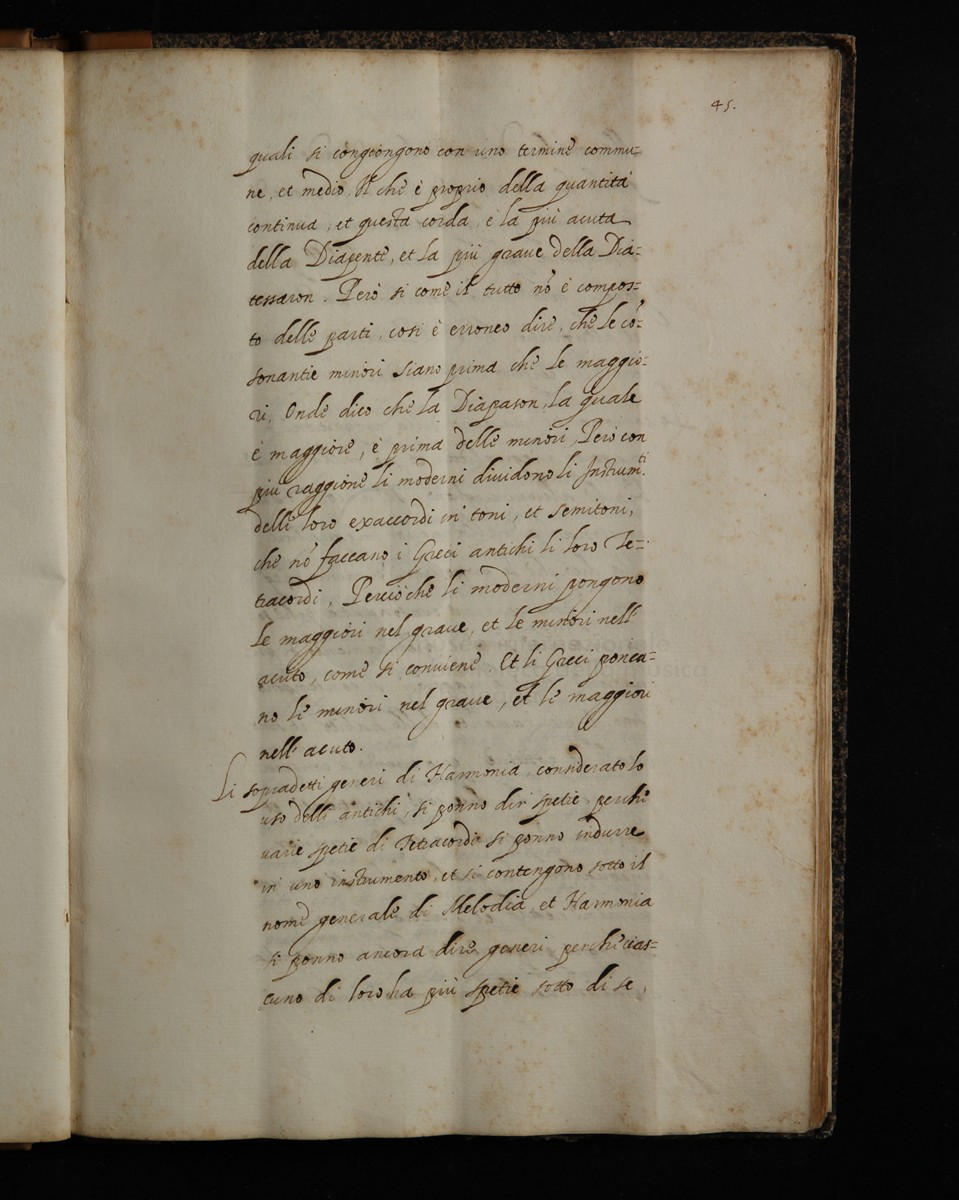 45.
quali si congiongono con uno terminè commu=
ne, et medio, Il chè è proprio della quantità
continua, et questa corda, è la più acuta
della Diapentè, et la più graue della Dia=
tessaron. Però si comè il tutto nō è compos=
to dellè parti, così è erroneo dirè, chè le cō=
sonantie minori siano prima chè le maggio=
ri, Ondè dico chè la Diapason, la qualè
è maggiorè, è prima dellè minori, Però con
più raggionè li moderni diuidono li Instrum.ti
dellè loro exaccordi in toni, et semitoni,
chè nō faceano i Greci antichi li loro Te=
tracordi, Perciòchè li moderni pongono
le maggiori nel graue, et le minori nell'
acuto, comè si conuienè. Et li Greci ponea=
no lè minori nel graue, et lè maggiori
nell' acuto.
Li sopradetti generi di Harmonia, considerato lo
uso delli antichi, si ponno dir spetie, perchè
varie spetie di Tetracordi si ponno indurre
in uno instrumento, et si contengono sotto il
nomè generalè di Melodia, et Harmonia
si ponno ancora dirè generi perchè cias=
cuno di loro ha più spetie sotto di se,